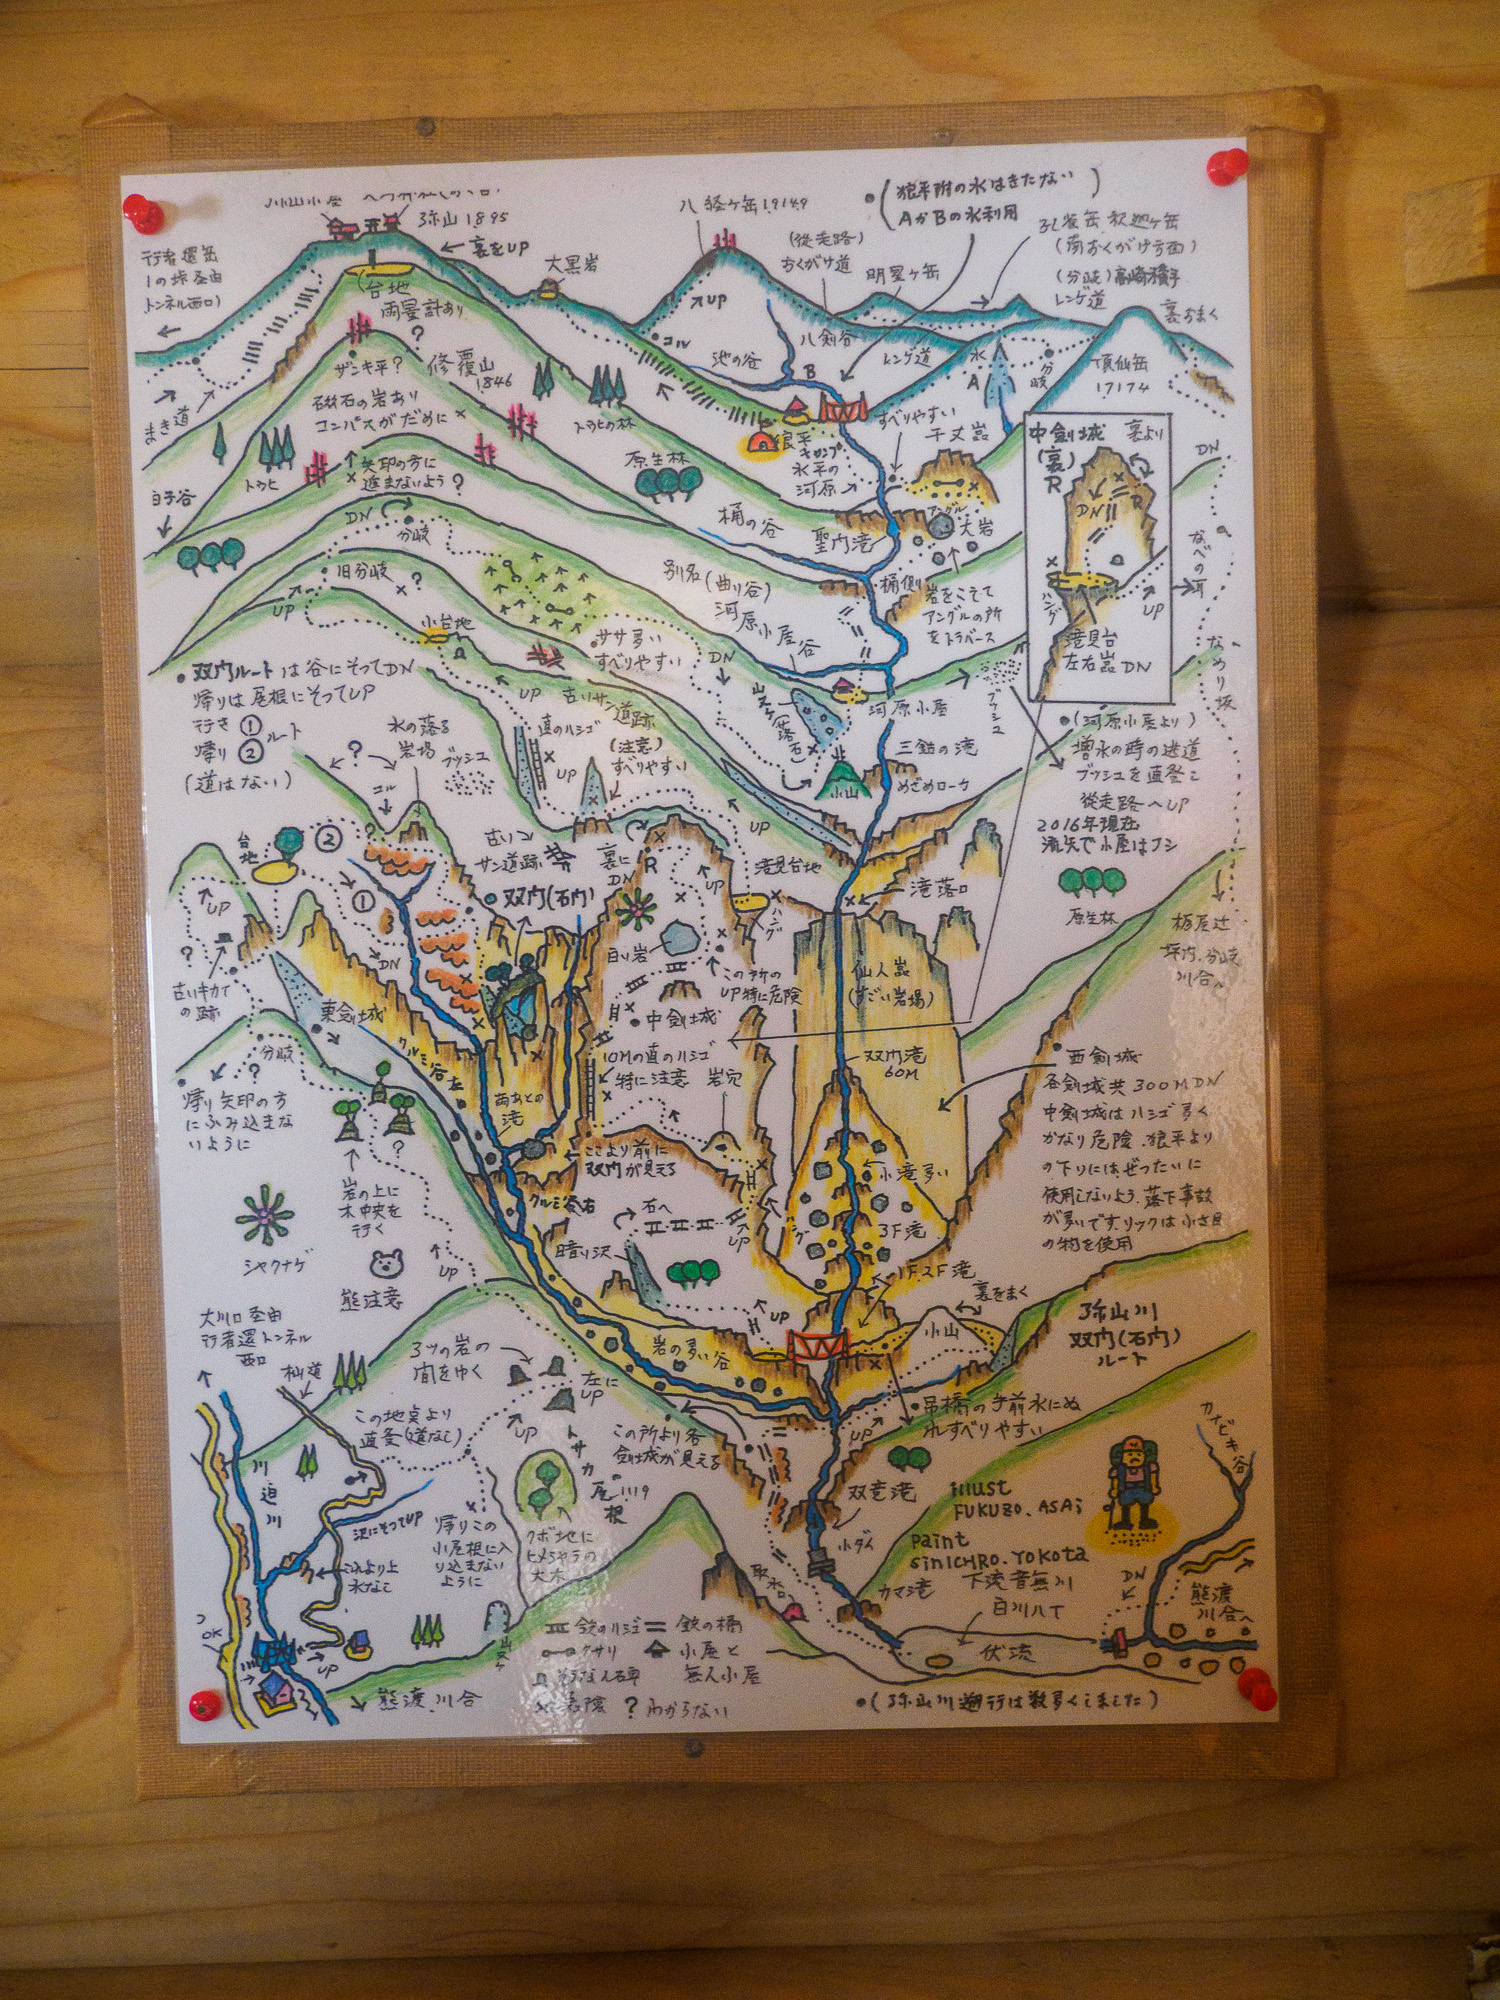 弥山小屋
弥山 1895
裏をUP
大黒岩
八経ヶ岳 1914.9
(狼平附の水はきたない)
AかBの水利用
(従走路)
おくがけ道
明星ヶ岳
孔雀岳 釈迦ヶ岳
(南おくがけ方面)
(分岐)高崎横手
レンゲ道
裏をまく
行者還岳
トンネル西口)
(台地
雨量計あり
?
UP
コル
池の谷
八剣谷
レンゲ道
水
A
B
分岐
頂仙岳
1717.4
まき道
ザンキ平?
修覆山
1846
磁石の岩あり
コンパスがだめに
トウヒの林
狼平
キャンプ
水平の
河原
すべりやすい
千丈嵓
中剣城 裏より
(裏)
R
DN
白子谷
トウヒ
矢印の方に
進まないよう?
原生林
桶の谷
アングル
大岩
聖門滝
DN
分岐
旧分岐
?
UP
別名(曲り谷)
河原小屋谷
桶側
岩をこえて
アングルの所
をトラバース
ハング
UP
滝見台
左右嵓DN
なべの耳
なめり坂
小台地
ササ多い
すべりやすい
DN
双門ルートは谷にそってDN
帰りは尾根にそってUP
行き①
帰り②ルート
(道はない)
UP
古いサン道跡
(注意)
すべりやすい
水の落る
岩場
ブッシュ
直のハシゴ
UP
河原小屋
ブッシュ
三鈷の滝
小山
(河原小屋より)
増水の時の逃道
ブッシュを直登し
従走路へUP
2016年現在
流失で小屋はナシ
コル
台地
②
①
古いサン道跡
裏に
DN
R
UP
滝見台地
滝落口
原生林
双門(石門)
ハング
白い岩
この所の
UP特に危険
仙人嵓
(すごい岩場)
栃尾辻
坪内.分岐
川合へ
UP
?
DN
東剣城
中剣城
10Mの直のハシゴ
特に注意
岩穴
双門滝
60M
西剣城
各剣城共 300M DN
中剣城はハシゴ多く
かなり危険.狼平より
の下りにはぜったいに
使用しないよう.落下事故
が多いです.リックは小さ目
の物を使用
分岐
?
帰り矢印の方
にふみ込まな
いように
クルミ谷左
滝
ここより前に
双門が見える
小滝多い
クルミ谷右
石へ
ハング
3F滝
UP
岩の上に
木中央を
行く
シャクナゲ
熊注意
UP
暗い沢
1F.2F滝
裏をまく
小山
弥山川
双門(石門)
ルート
大川口経由
行者還トンネル
西口
杣道
3ッの岩の
間をゆく
左に
UP
岩の多い谷
この地点より
直登(道なし)
UP
この所より各
剣城が見える
UP
吊橋の手前水にぬ
れすべりやすい
トサカ尾根
1119
川迫川
沢にそってUP
これより上
水なし
帰りこの
小尾根に入
り込まない
ように
クボ地に
ヒメシャラの
大木
双竜滝
小ダム
取水口
カマ滝
illust
FUKUZO.ASAi
paint
SiNICHRO.YOKOTA
下流音無川
白川八丁
伏流
カナビキ谷
DN
熊渡
川合へ
OK
UP
熊渡 川合
鉄のハシゴ
鉄の桶
クサリ
小屋と
無人小屋
そうなん碑
危険
?わからない
(弥山川遡行は数多くしました)